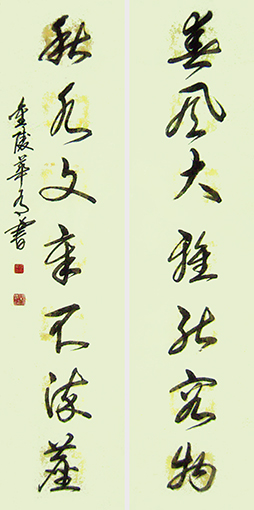 春风大雅能容物
秋水文章不染塵
金陵華書